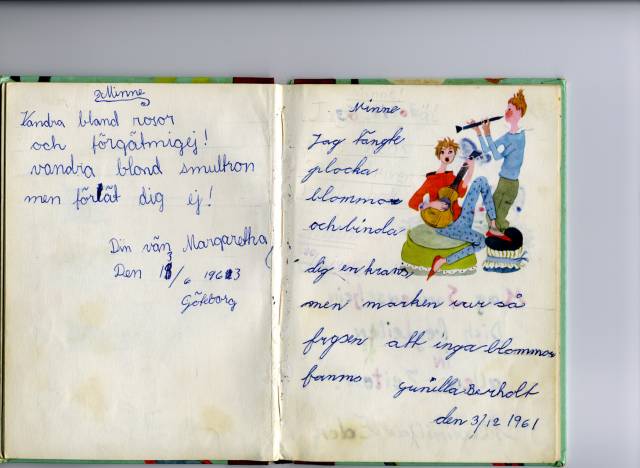 Minne
Vandra bland rosor
och förgätmigej!
vandra bland smultron
men förlåt dig ej!
Din vän Margaretha
Den 13/6 1963
Göteborg
Minne
Jag tängte
plocka
blommor
och binda
dig en krans,
men marken var så
frysen att inga blommor
fanns
Gunilla Berholt
den 3/12 1961